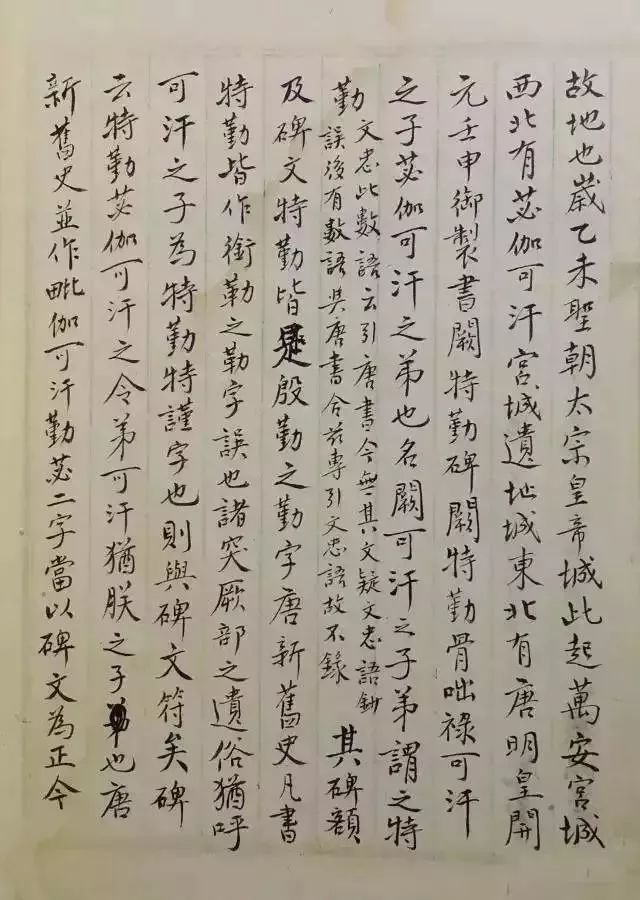 故地也歲乙未聖朝太宗皇帝城此起萬安宮城
西北有苾伽可汗宮城遺址城東北有唐明皇開
元壬申御製書闕特勤碑闕特勤骨咄祿可汗
之子苾伽可汗之弟也名闕可汗之子弟謂之特
勤
文忠此數語云引唐書今無其文疑文忠語鈔
誤後有數語與唐書合茲專引文忠語故不錄
其碑額
及碑文特勤皆是殷勤之勤字唐新舊史凡書
特勤皆作銜勒之勒字誤也諸突厥部之遺俗猶呼
可汗之子為特勤特謹字也則與碑文符矣碑
云特勤苾伽可汗之令弟可汗猶朕之子也唐
新舊史並作毗伽可汗勤苾二字當以碑文為正今